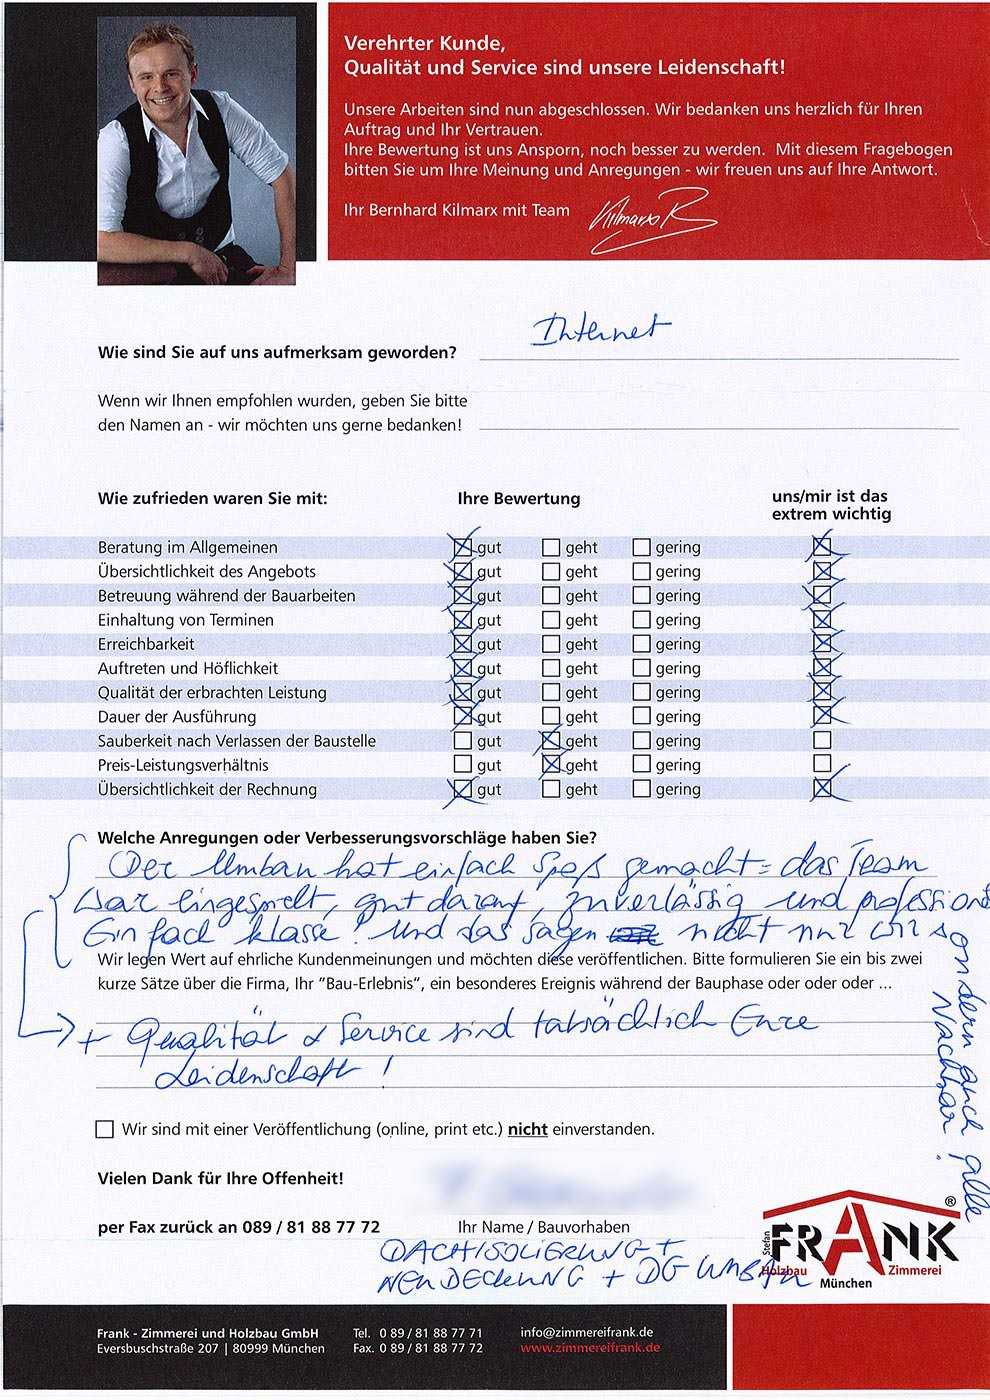 Verehrter Kunde,
Qualität und Service sind unsere Leidenschaft!
Unsere Arbeiten sind nun abgeschlossen. Wir bedanken uns herzlich für Ihren
Auftrag und Ihr Vertrauen.
Ihre Bewertung ist uns Ansporn, noch besser zu werden. Mit diesem Fragebogen
bitten Sie um Ihre Meinung und Anregungen - wir freuen uns auf Ihre Antwort.
Ihr Bernhard Kilmarx mit Team Kilmarx B
Internet
Wie sind Sie auf uns aufmerksam geworden?
Wenn wir Ihnen empfohlen wurden, geben Sie bitte
den Namen an - wir möchten uns gerne bedanken!
Wie zufrieden waren Sie mit: Ihre Bewertung uns/mir ist das
extrem wichtig
Beratung im Allgemeinen gut geht gering
Übersichtlichkeit des Angebots gut geht gering
Betreuung während der Bauarbeiten gut geht gering
Einhaltung von Terminen gut geht gering
Erreichbarkeit gut geht gering
Auftreten und Höflichkeit gut geht gering
Qualität der erbrachten Leistung gut geht gering
Dauer der Ausführung gut geht gering
Sauberkeit nach Verlassen der Baustelle gut geht gering
Preis-Leistungsverhältnis gut geht gering
Übersichtlichkeit der Rechnung gut geht gering
Welche Anregungen oder Verbesserungsvorschläge haben Sie?
Der Umbau hat einfach Spaß gemacht = das Team
war eingespielt, gut darauf, zuverlässig und professionell
Einfach klasse! Und das sagen nicht nur wir sondern auch alle
Nachbar!
Wir legen Wert auf ehrliche Kundenmeinungen und möchten diese veröffentlichen. Bitte formulieren Sie ein bis zwei
kurze Sätze über die Firma, Ihr "Bau-Erlebnis", ein besonderes Ereignis während der Bauphase oder oder oder ...
+ Qualität & Service sind tatsächlich Eure
Leidenschaft!
Wir sind mit einer Veröffentlichung (online, print etc.) nicht einverstanden.
Vielen Dank für Ihre Offenheit!
per Fax zurück an 089 / 81 88 77 72 Ihr Name / Bauvorhaben
DACHISOLIERUNG +
NEUDECKUNG + DG UMBAU
Stefan FRANK ®
Holzbau Zimmerei
München
Frank - Zimmerei und Holzbau GmbH Tel. 0 89 / 81 88 77 71 info@zimmereifrank.de
Eversbuschstraße 207 | 80999 München Fax. 0 89 / 81 88 77 72 www.zimmereifrank.de